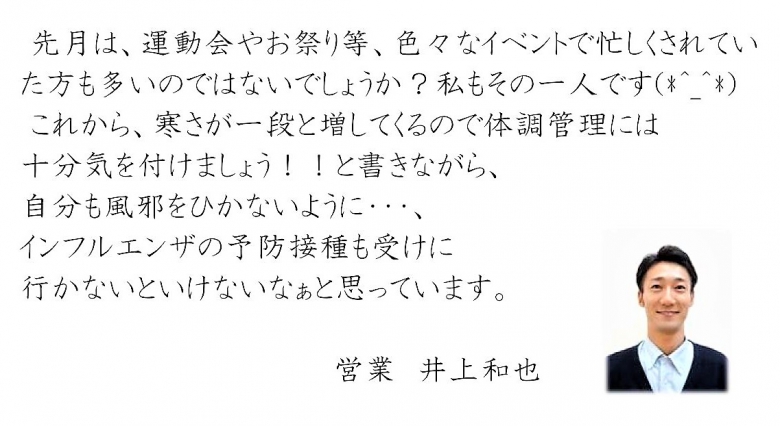 先月は、運動会やお祭り等、色々なイベントで忙しくされてい
た方も多いのではないでしょうか？私もその一人です(*^_^*)
これから、寒さが一段と増してくるので体調管理には
十分気を付けましょう！！と書きながら、
自分も風邪をひかないように・・・、
インフルエンザの予防接種も受けに
行かないといけないなぁと思っています。
営業　井上和也